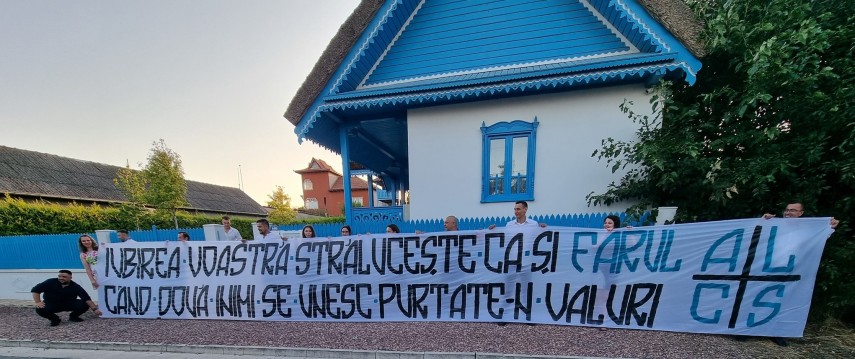 IUBIREA·VOASTRĂ·STRĂLUCEȘTE·CA·ȘI FARUL
CÂND·DOUĂ·INIMI·SE·UNESC·PURTATE-N·VALURI
A L
C S